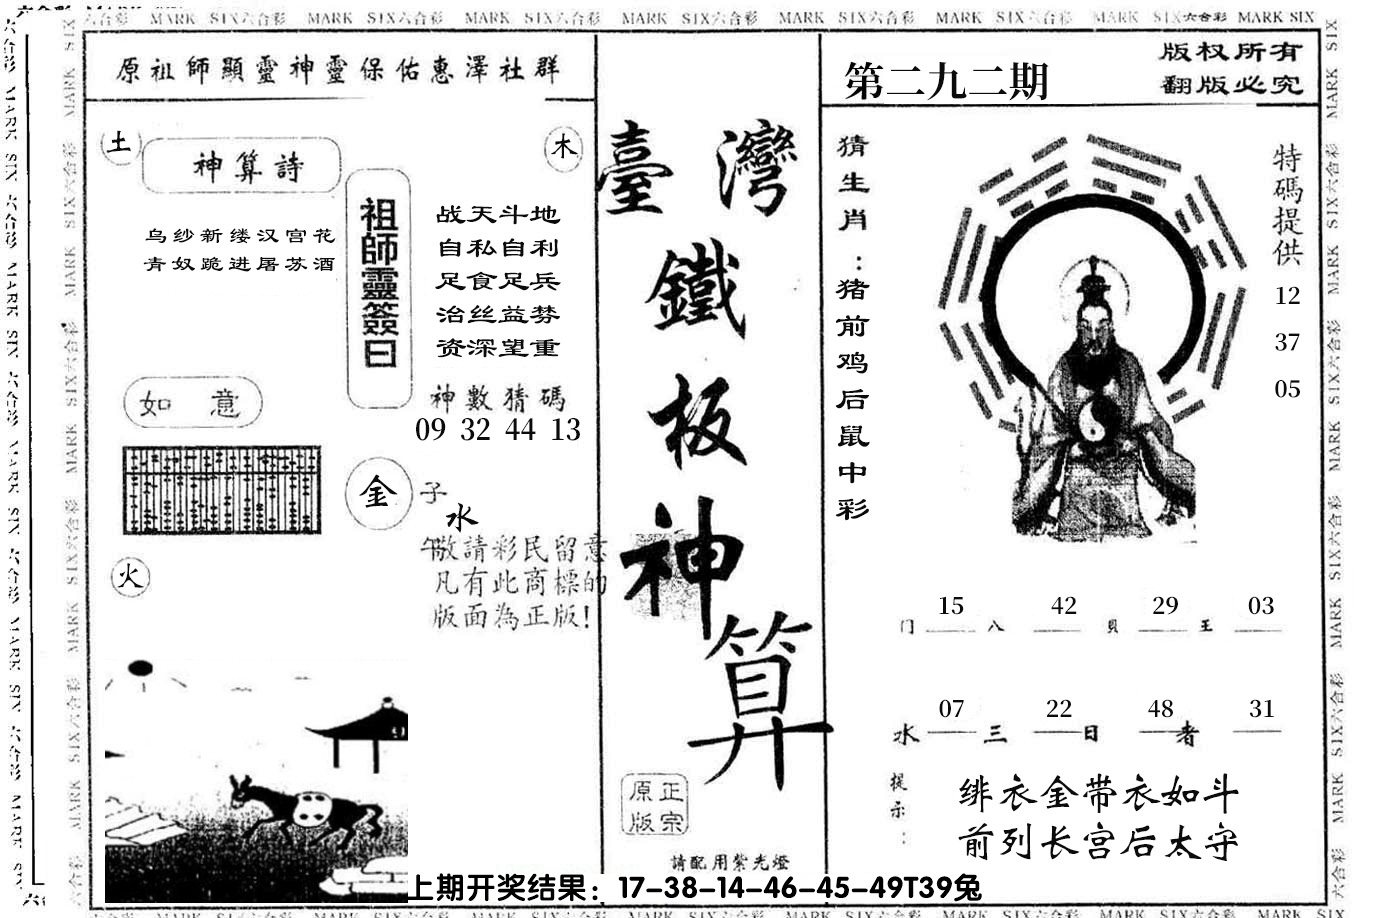 MARK SIX六合彩 MARK SIX六合彩 MARK SIX六合彩 MARK SIX六合彩 MARK SIX六合彩 MARK SIX六合彩 MARK SIX六合彩 MARK SIX
原祖師顯靈神靈保佑惠澤社群
土
神算詩
木
乌纱新缕汉宫花
青奴跪进屠苏酒
祖師靈簽曰
战天斗地
自私自利
足食足兵
治丝益棼
资深望重
神數猜碼
09 32 44 13
如 意
金
子
水
午
敬請彩民留意
凡有此商標的
版面為正版!
火
臺灣
鐵
板
神
算
正宗
原版
請配用紫光燈
第二九二期
版权所有
翻版必究
猜生肖：猪前鸡后鼠中彩
特碼提供
12
37
05
15 42 29 03
门 八 貝 王
07 22 48 31
水 三 日 者
提示：
绯衣金带衣如斗
前列长宫后太守
上期开奖结果：17-38-14-46-45-49T39兔